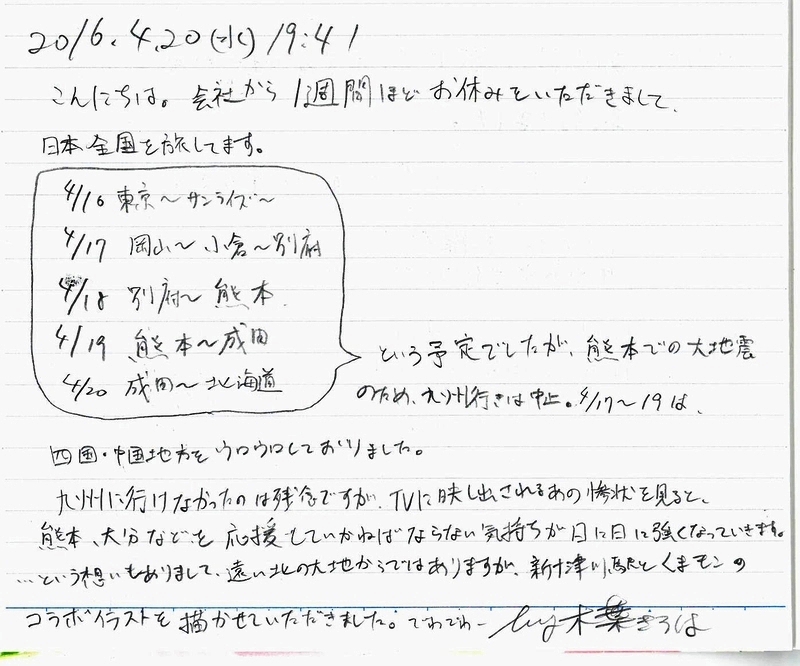 2016.4.20(水) 19:41
こんにちは。会社から1週間ほどお休みをいただきまして、
日本全国を旅してます。
4/16 東京〜サンライズ〜
4/17 岡山〜小倉〜別府
4/18 別府〜熊本
4/19 熊本〜成田
4/20 成田〜北海道
という予定でしたが、熊本での大地震
のため、九州行きは中止。4/17〜19は、
四国・中国地方をウロウロしておりました。
九州に行けなかったのは残念ですが、TVに映し出されるあの惨状を見ると、
熊本、大分などを応援していかねばならない気持ちが日に日に強くなっていきます。
…という想いもありまして、遠い北の大地からではありますが、新十津川駅とくまモンの
コラボイラストを描かせていただきました。でわでわー by木葉